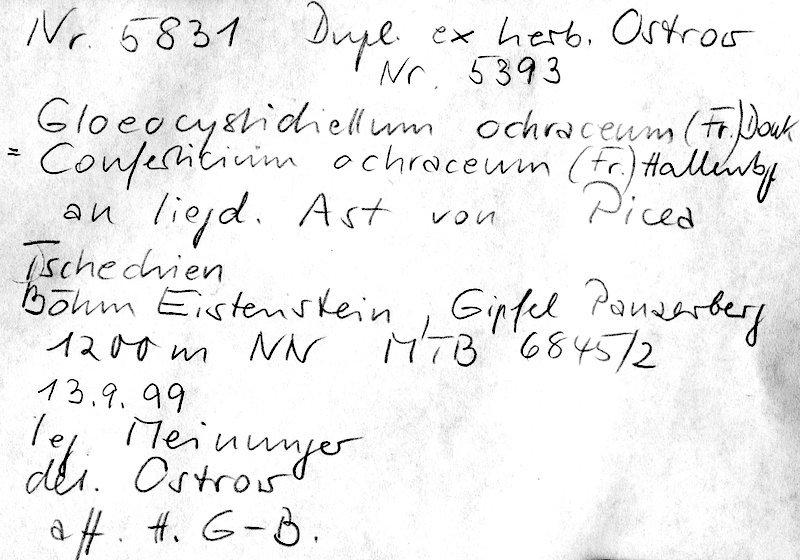 Nr. 5831 Dupl. ex herb. Ostrow
Nr. 5393
Gloeocystidiellum ochraceum (Fr.) Donk
= Conferticium ochraceum (Fr.) Hallenbg
an liegd. Ast von Picea
Tschechien
Böhm Eistenstein, Gipfel Panzerberg
1200m NN MTB 6845/2
13.9.99
leg. Meinunger
det. Ostrow
aff. H. G-B.